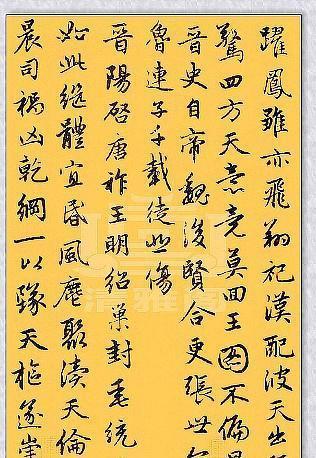 躍鳳雛亦飛翔祀漢配彼天出
驚四方天意竟莫回王圖不偏
晉史自帝魏後賢合更張世
魯連子千載徒悲傷
晉陽啓唐祚王明紹巢封垂統
如此繼體宜昏風麀聚瀆天倫
晨司禍凶乾綱一以墜天樞遂崇